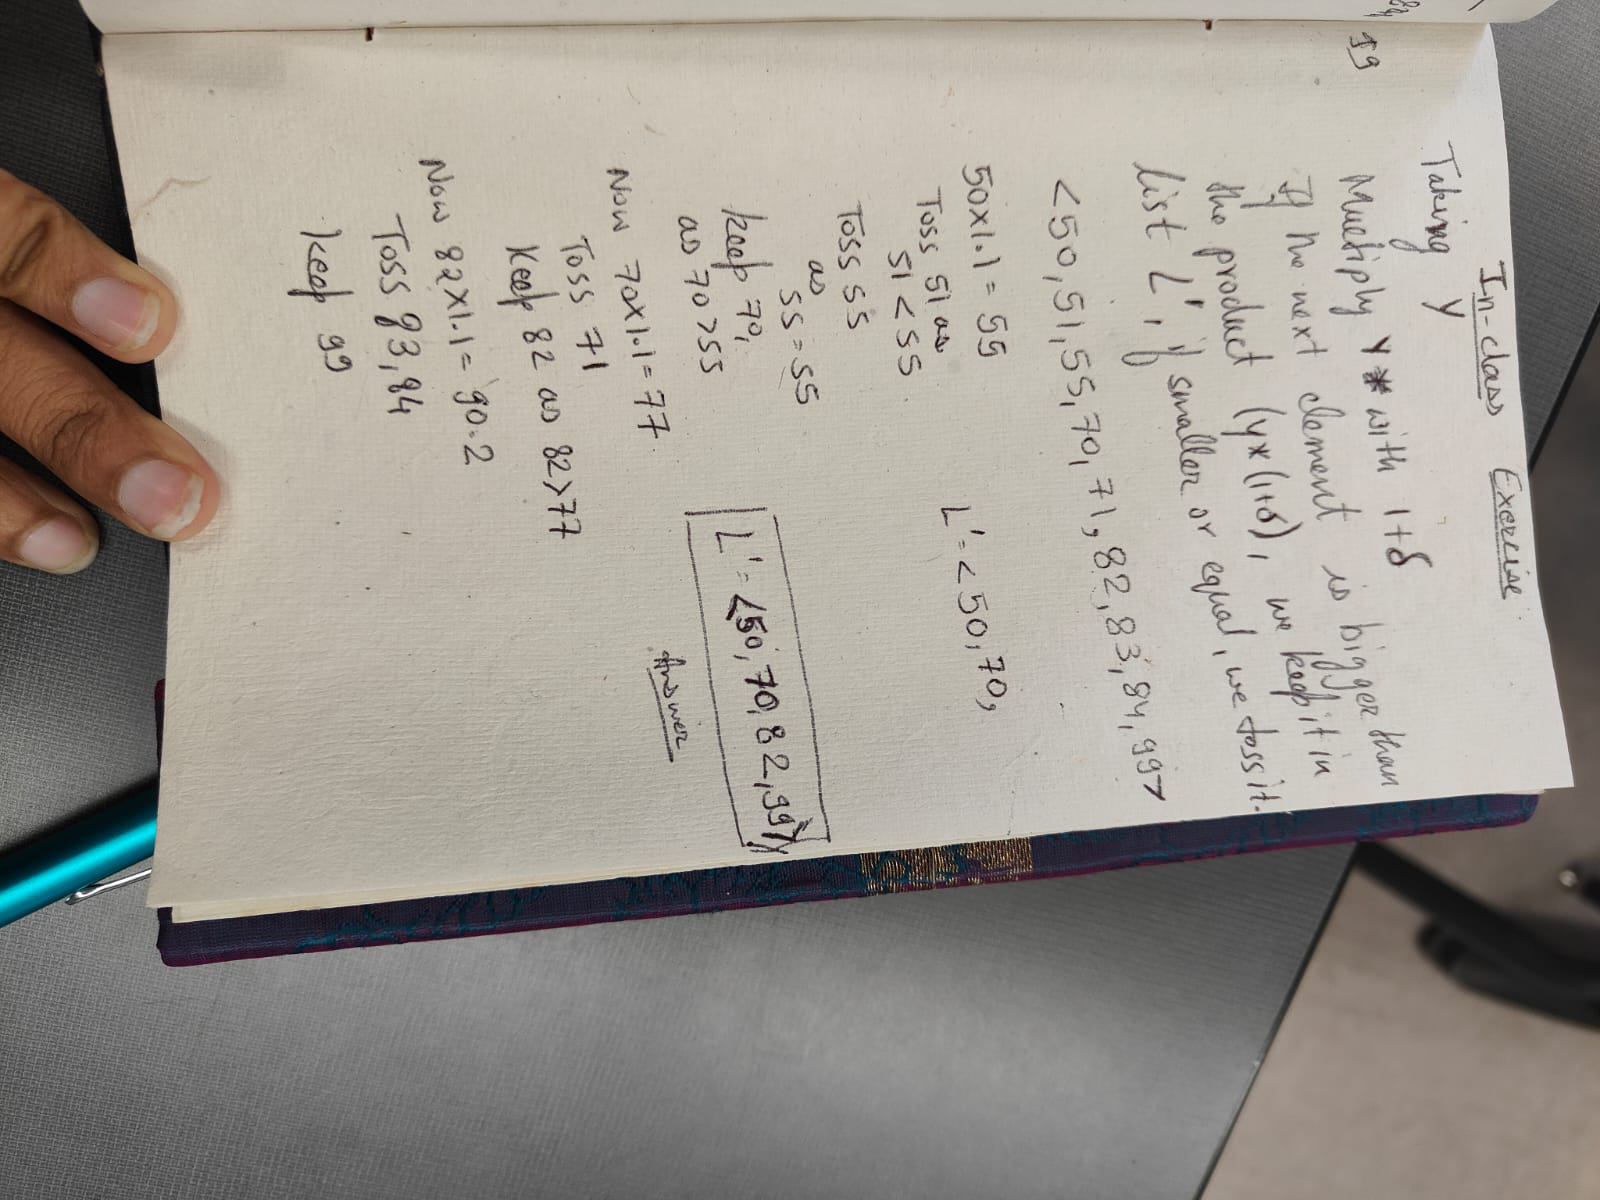 19
In-class Exercise
Taking y
Multiply y with 1+δ
If the next element is bigger than
the product (y×(1+δ), we keep it in
list L', if smaller or equal, we toss it.
<50,51,55,70,71,82,83,84,99>
50×1.1 = 55
L'=<50,70,
Toss 51 as
51<55
Toss 55
as
55=55
keep 70,
as 70>55
L'=<50,70,82,99>
Answer
Now 70×1.1=77
Toss 71
Keep 82 as 82>77
Now 82×1.1= 90.2
Toss 83,84
keep 99